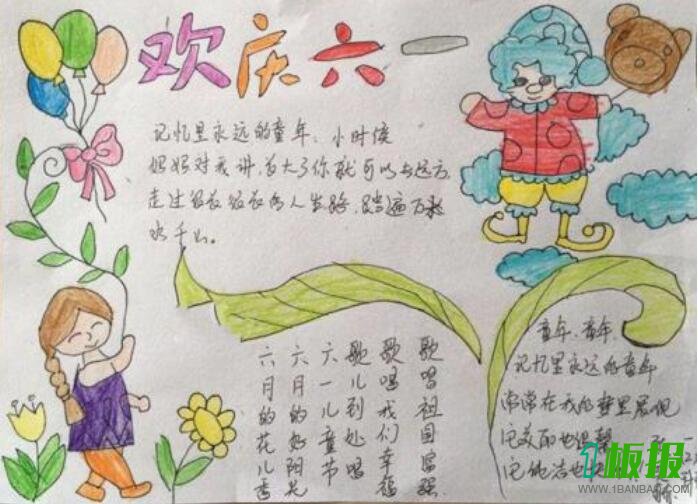 欢庆六一
记忆里永远的童年,小时候
妈妈对我讲,长大了你就可以去远方
走过很长很长的人生路,踏遍万水
千山。
六月的花儿香
六月的好阳光
六一儿童节
歌儿到处唱
歌唱我们幸福
歌唱祖国富强
童年,童年,
记忆里永远的童年
常常在我的梦里展现
1板报
WWW.1BANBAO.COM